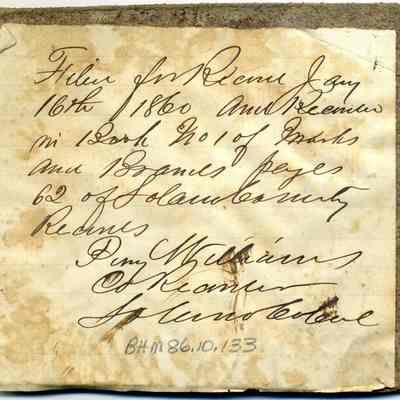 Filed for Record Jany
16th 1860 and Recorded
in Book No 1 of Marks
and Brands pages
62 of Solano County
Records
Williams
Co Recorder
Solano Co Cal
BHM 86.10.133